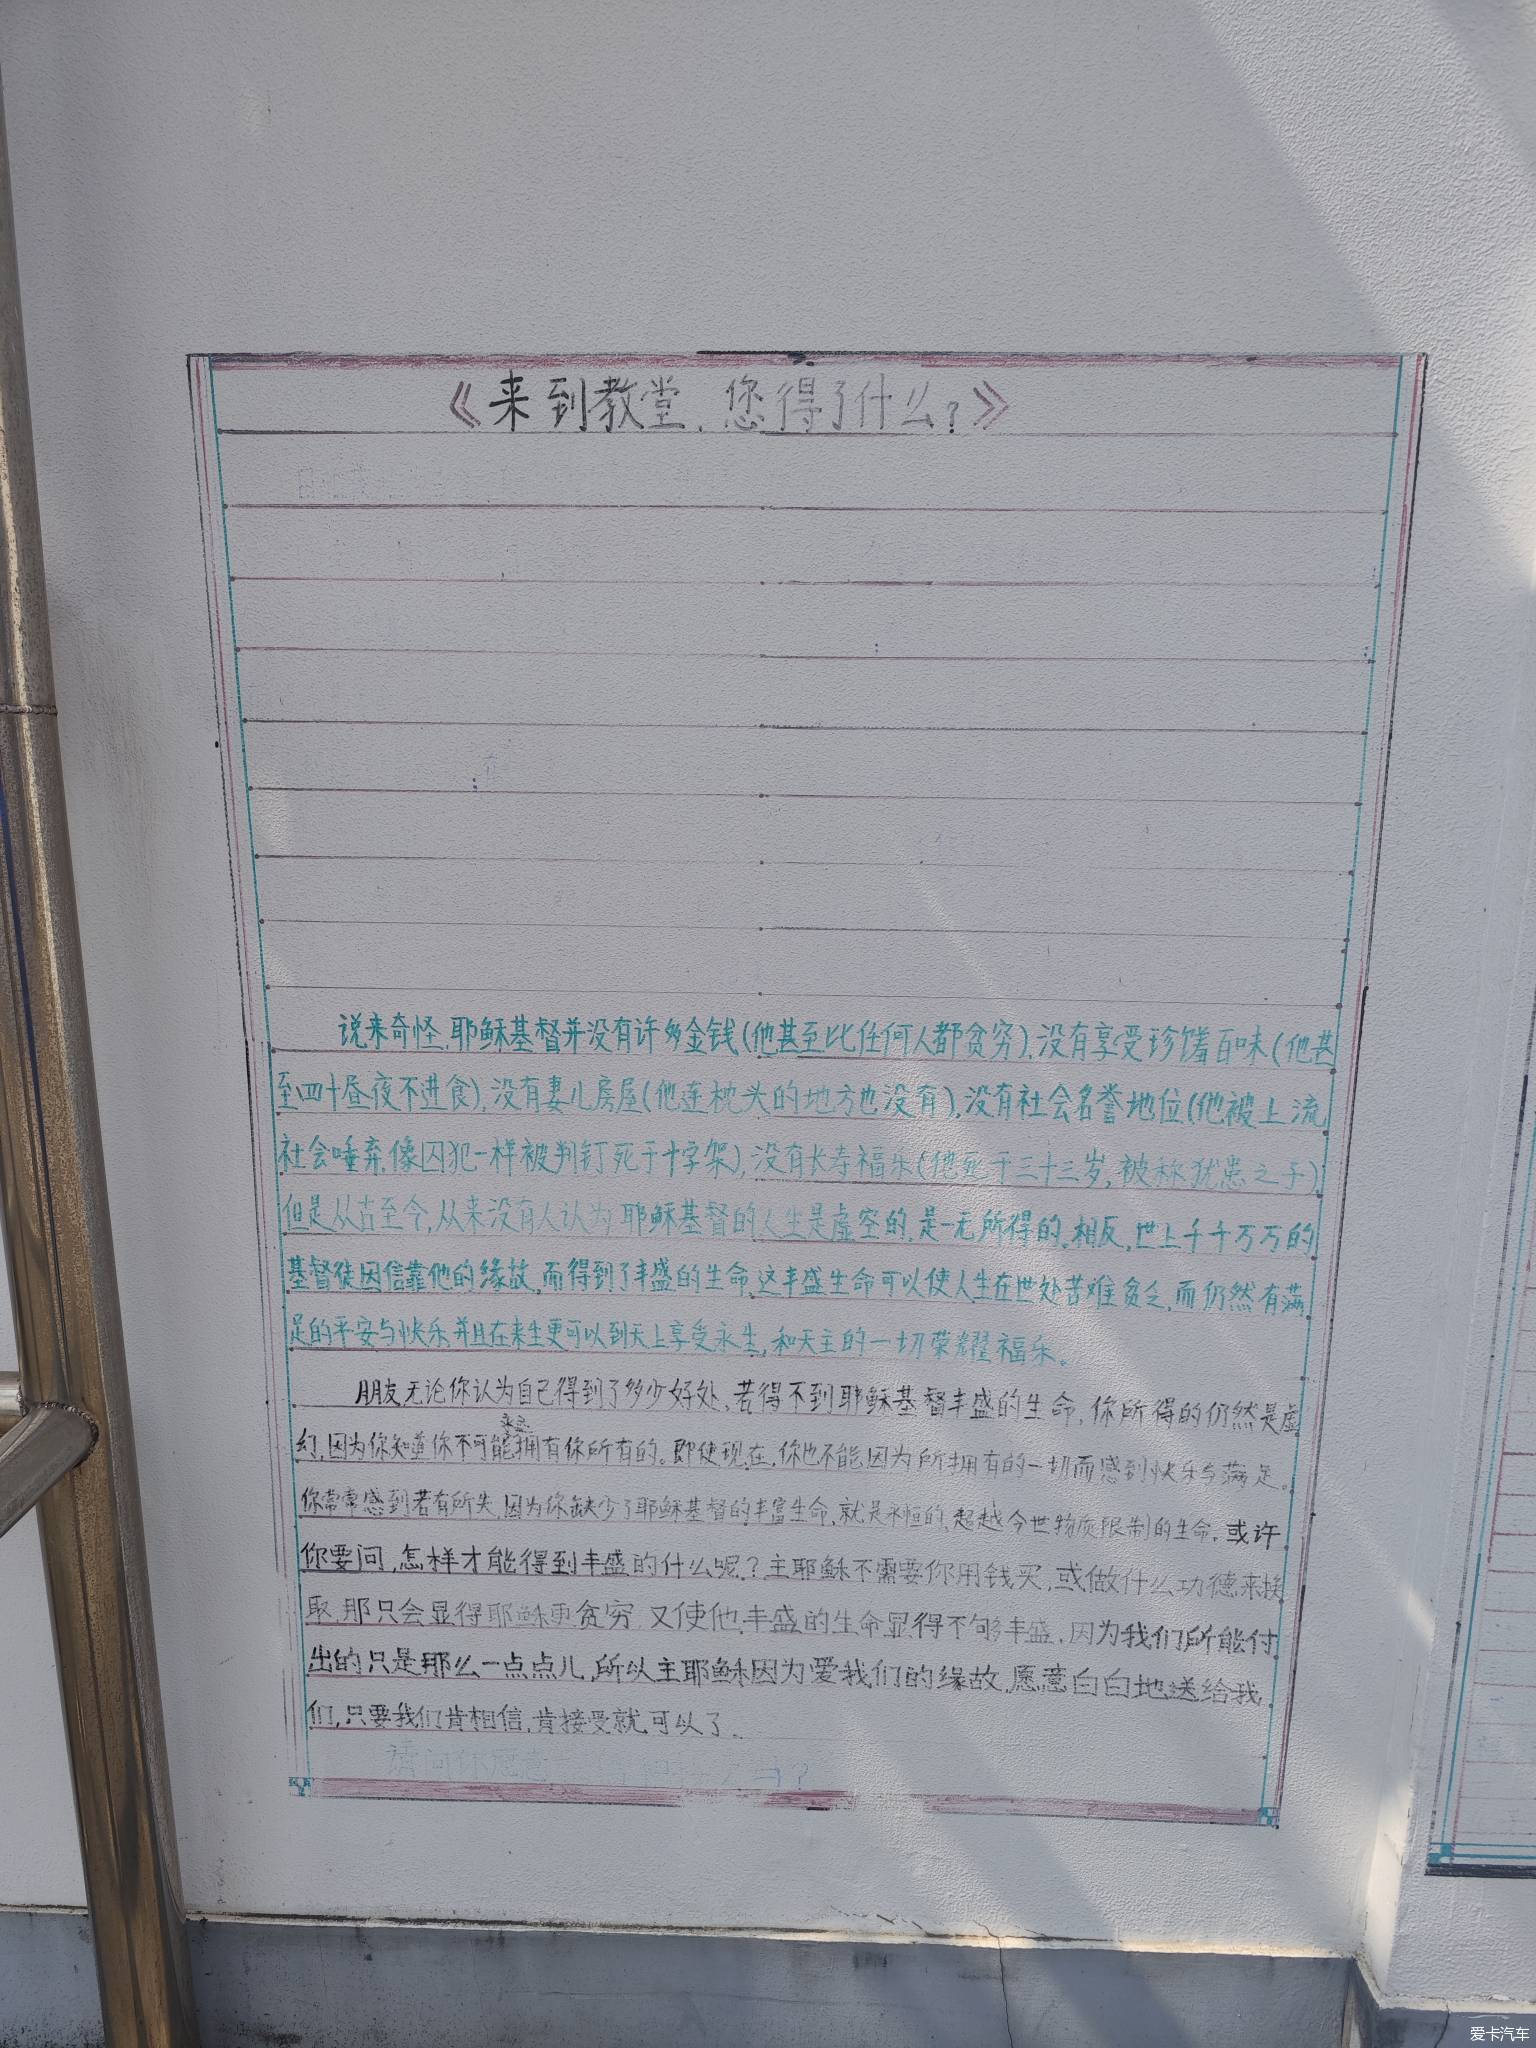 《来到教堂,您得了什么?》
说来奇怪,耶稣基督并没有许多金钱(他甚至比任何人都贫穷),没有享受珍馐百味(他甚
至四十昼夜不进食),没有妻儿房屋(他连枕头的地方也没有),没有社会名誉地位(他被上流
社会唾弃,像囚犯一样被判钉死于十字架),没有长寿福乐(他死于三十三岁,被称犹患之子)
但是从古至今,从来没有人认为耶稣基督的人生是虚空的,是一无所得的,相反,世上千千万万的
基督徒因信靠他的缘故,而得到了丰盛的生命,这丰盛生命可以使人生在世处苦难贫乏,而仍然有满
足的平安与快乐,并且在来生更可以到天上享受永生,和天主的一切荣耀福乐。
朋友无论你认为自己得到了多少好处,若得不到耶稣基督丰盛的生命,你所得的仍然是虚
幻,因为你知道你不可能永远拥有你所有的。即使现在,你也不能因为所拥有的一切而感到快乐与满足。
你常常感到若有所失,因为你缺少了耶稣基督的丰富生命,就是永恒的,超越今世物质限制的生命。或许
你要问,怎样才能得到丰盛的什么呢?主耶稣不需要你用钱买,或做什么功德来换
取,那只会显得耶稣更贫穷,又使他丰盛的生命显得不够丰盛,因为我们所能付
出的只是那么一点点儿,所以主耶稣因为爱我们的缘故,愿意白白地送给我
们,只要我们肯相信,肯接受就可以了.
请问你愿意
爱卡汽车